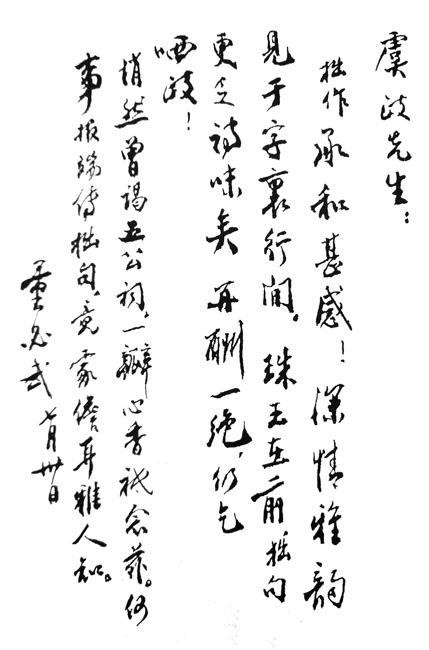 虞政先生：
拙作承和甚感！深情雅韻
見于字裏行間。珠玉在前拙句
更乏詩味矣 再酬一绝，仍乞
哂政！
悄然曾谒五公祠，一瓣心香祗念兹。何
事报端传拙句，竟蒙儋耳雅人知。
董必武 七月卅日